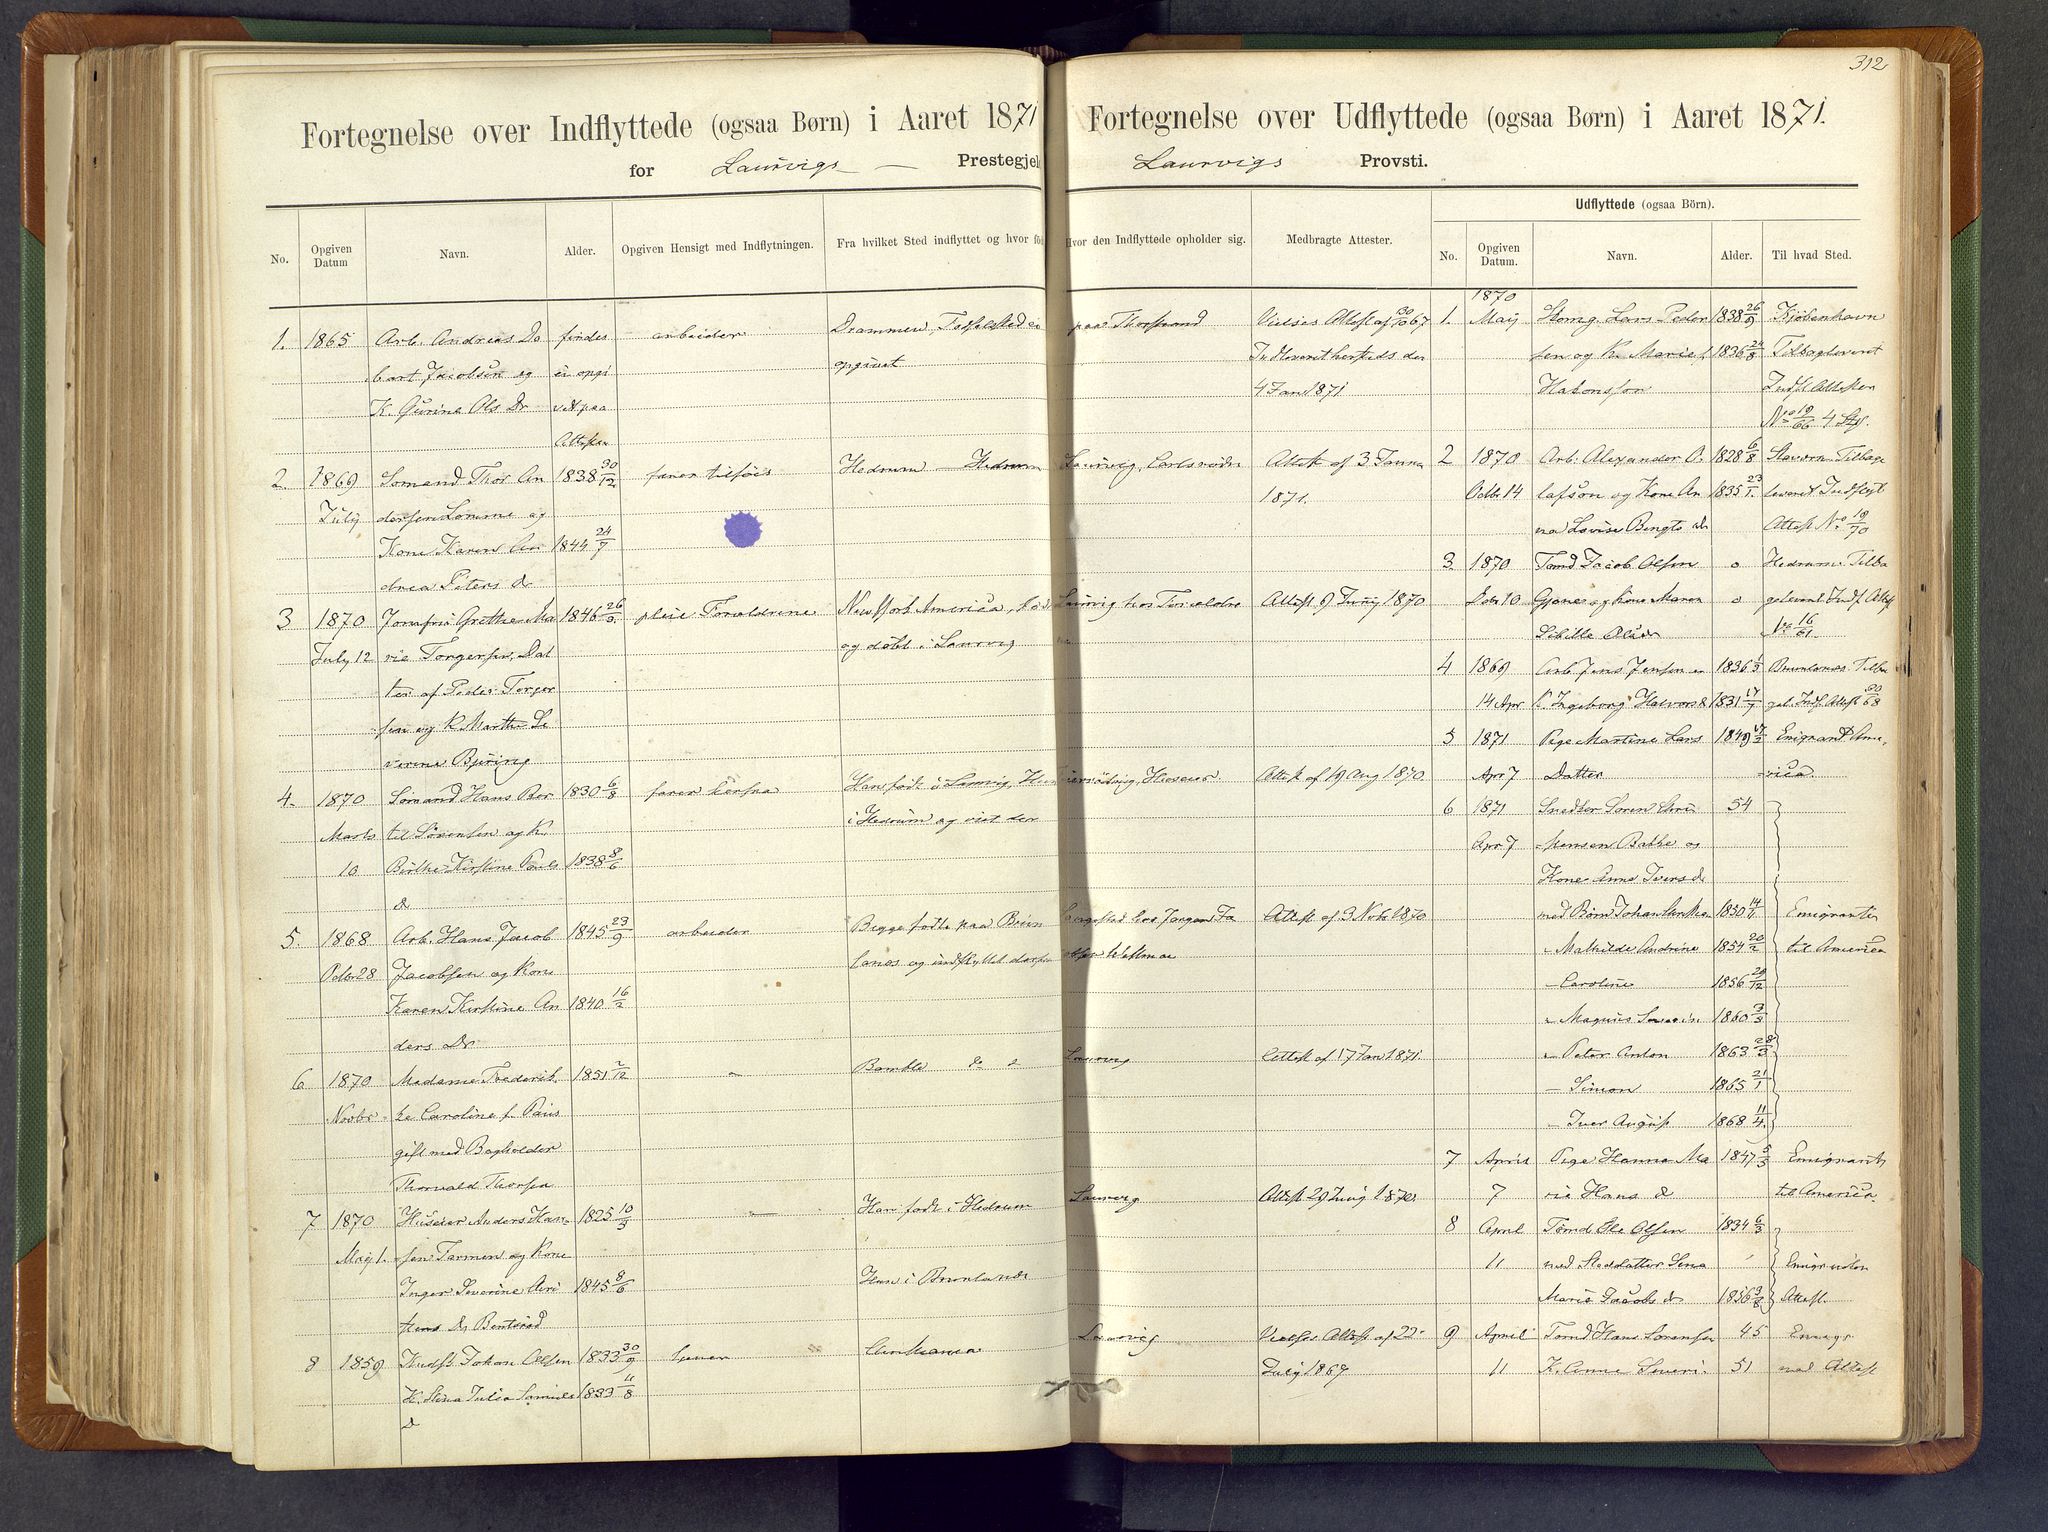 312
Fortegnelse over Indflyttede (ogsaa Børn) i Aaret 1871
for Laurvigs — Prestegjel
No.
Opgiven Datum
Navn.
Alder.
Opgiven Hensigt med Indflytningen.
Fra hvilket Sted indflyttet og hvor fö
Hvor den Indflyttede opholder sig.
Medbragte Attester.
1. 1865 Arb. Andreas Do findes arbeider Drammen, Fødselsted ei paa Thorstrand Vielses Attest af 30/10 67
bart Jacobsen og ei opgi opgivet Indleveret hersteds den
K. Gurine Ols Dr vet paa 4 Jan 1871
Attesten
2. 1869 Sømand Thor An 1838 30/12 farer tilsøes Hedrum — Hedrum Laurvig, Attest af 3 Janua
July dersen Lømme og 1871.
Kone Karen An 1844 24/7
drea Peters d
3 1870 Jomfru Grethe Ma 1846 26/3 pleie Forældrene New York America, Laurvig hos Forældre Attest 9 Juny 1870
July 12 rie Torgersen, Dat og døbt i Laurvig ne
ter af Peder Torger
sen og K. Marthe Se
verine Bjering
4. 1870 Sømand Hans Ber 1830 6/8 farer herfra Han født i Laurvig, Hun Attest af 19 Aug 1870
Marts til Sörensen og K. i Hedrum og viet der
10 Birthe Kirstine Pauls 1838 8/6
d
5. 1868 Arb. Hans Jacob 1845 23/9 arbeider Begge fødte paa Brun Langestad hos Jørgen Ja Attest af 3 Novb 1870
Octbr 28 Jacobsen og Kone lanes og indflyttet derfra
Karen Kirstine An 1840 16/2
ders Dr
6 1870 Madame Frederik 1851 2/12 — Bamble Laurvig Attest af 17 Jan 1871.
Novbr ke Caroline f. Paus
gift med Bogholder
Thorvald Thorsen
7 1870 Huseier Anders Han 1825 10/3 — Han født i Hedrum Laurvig Attest 29 Juny 1870
May 1. sen Farmen og Kone
Inger Severine Ari 1845 8/6 Hun i Brunlanes
stens d Bentsrød
8 1859 Kudsk Johan Olsen 1833 30/9 tjener Christiania Laurvig Vielses Attest af 22
K. Stina Julia Samuels 1833 11/8 July 1867
d
Fortegnelse over Udflyttede (ogsaa Børn) i Aaret 1871.
Laurvigs Provsti.
Udflyttede (ogsaa Börn).
No.
Opgiven Datum.
Navn.
Alder.
Til hvad Sted.
1. 1870 May Lars Peder 1838 26/9 Kjöbenhavn
sen og K. Marie f. 1836 24/8 Tilbageleveret
Hakonsson Indfl. Attesten
No 19/66 4 Stk.
2 1870 Arb. Alexander O. 1828 6/8 Stavern Tilbage
Octbr 14 lafson og Kone An 1835 23/1 leveret Indflyt
na Lovise Bengts d Attest No 18/70
3. 1870 Tømd Jacob Olsen o Hedrum Tilba
Dcbr 10 Gjønes og Kone Maren o geleveret Indf. Attest
Sibille Olsdr No 16/61
4 1869 Arb. Jens Jensen 1836 1/3 Brunlanes. Tilba
14 Apr K. Ingeborg Halvors d 1831 17/7 gel. Indf. Attest 20/68
5 1871 Pige Martine Lars 1849 Emigrant Ame
Apr 7 Datter rica.
6 1871 Snedker Soren Chri 54
Apr 7 stensen Bakke og
Kone Anne Ivers d
med Børn Johan 1850 14/7 Emigranter
" Mathilde Andrine 1854 20/2 til America
— Caroline 1856 29/12
" Magnus Severin 1860 3/3
" Peter Anton 1863 28/3
— Simon 1865 21/1
— Iver August 1868 11/4
7 April Pige Hanna Ma 1847 5/3 Emigrant
7 rie Hans d til America.
8 April Tömd Ole Olsen 1834 6/3
11 med Steddatter Lena " Emigr uden
Marie Jacobs d 1856 3/8 Attest.
9 April Tømd Hans Sorensen 45 Emigr
11 K. Anne Severi. 51 med Attest